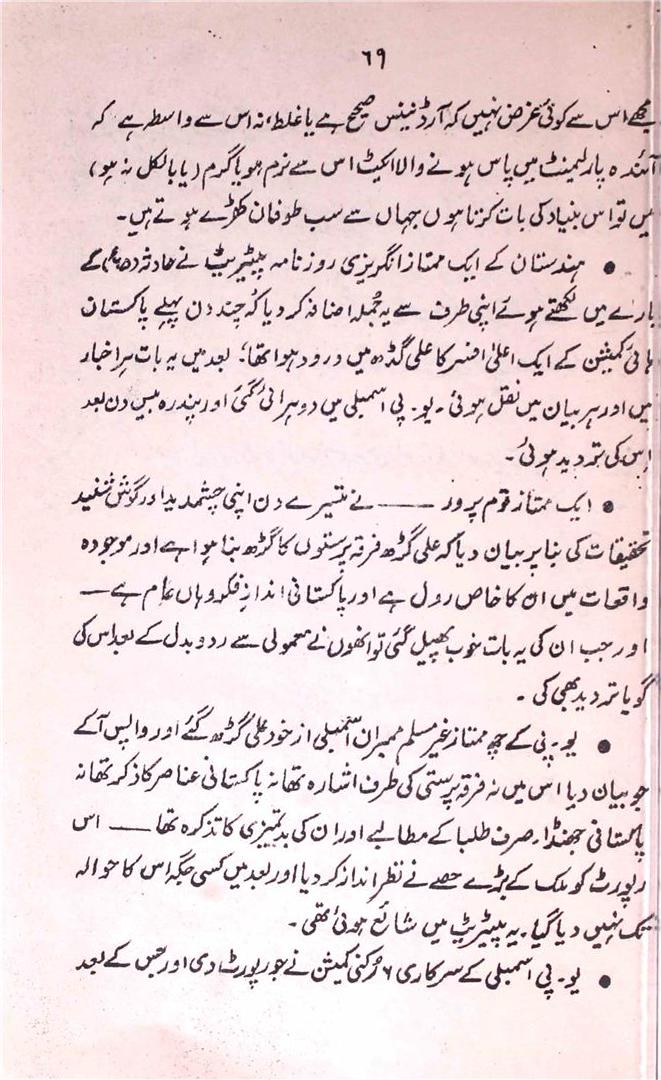 ۶۹
مجھے اس سے کوئی غرض نہیں کہ آرڈنینس صحیح ہے یا غلط، نہ اس سے واسطہ ہے کہ
آئندہ پارلیمنٹ میں پاس ہونے والا ایکٹ اس سے نرم ہو یا گرم (یا بالکل نہ ہو)
میں تو اس بنیاد کی بات کرتا ہوں جہاں سے سب طوفان کھڑے ہوتے ہیں۔
● ہندستان کے ایک ممتاز انگریزی روزنامہ پیٹریٹ نے حادثہ کے
بارے میں لکھتے ہوئے اپنی طرف سے یہ جملہ اضافہ کر دیا کہ چند دن پہلے پاکستان
ہائی کمیشن کے ایک اعلیٰ افسر کا علی گڈھ میں درود ہوا تھا؛ بعد میں یہ بات ہر اخبار
میں اور ہر بیان میں نقل ہوئی۔ یو۔ پی اسمبلی میں دوہرائی گئی اور پندرہ بیس دن بعد
اس کی تردید ہوئی۔
● ایک ممتاز قوم پرور ——— نے تیسرے دن اپنی چشم دید اور گوش شنید
تحقیقات کی بنا پر بیان دیا کہ علی گڑھ فرقہ پرستوں کا گڑھ بنا ہوا ہے اور موجودہ
واقعات میں ان کا خاص رول ہے اور پاکستانی اندازِ فکر وہاں عام ہے —
اور جب ان کی یہ بات خوب پھیل گئی تو انھوں نے معمولی سے ردوبدل کے بعد اس کی
گویا تردید بھی کی۔
● یو۔ پی کے چھ ممتاز غیر مسلم ممبران اسمبلی از خود علی گڑھ گئے اور واپس آکے
جو بیان دیا اس میں نہ فرقہ پرستی کی طرف اشارہ تھا نہ پاکستانی عناصر کا ذکر تھا نہ
پاکستانی جھنڈا۔ صرف طلبا کے مطالبے اور ان کی بدتمیزی کا تذکرہ تھا —— اس
رپورٹ کو ملک کے بڑے حصے نے نظر انداز کر دیا اور بعد میں کسی جگہ اس کا حوالہ
تک نہیں دیا گیا۔ یہ پیٹریٹ میں شائع ہوئی تھی۔
● یو۔ پی اسمبلی کے سرکاری ۶ رکنی کمیشن نے جو رپورٹ دی اور جس کے بعد